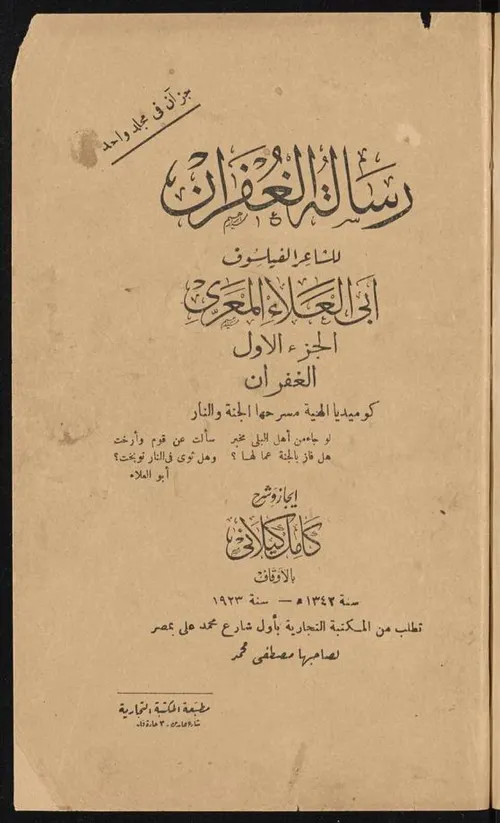 جزآن في مجلد واحد
رسالة الغفران
للشاعر الفيلسوف
أبي العلاء المعري
الجزء الاول
الغفران
كوميديا الهية مسرحها الجنة والنار
لو جاءمن أهل البلى مخبر سألت عن قوم وأرخت
هل فاز بالجنة عمالها ؟ وهل ثوى في النار نوبخت؟
أبو العلاء
ايجاز وشرح
كامل كيلاني
بالاوقاف
سنة ١٣٤٢ ه — سنة ١٩٢٣
تطلب من المكتبة التجارية بأول شارع محمد على بمصر
لصاحبها مصطفى محمد
مطبعة المكتبة التجارية